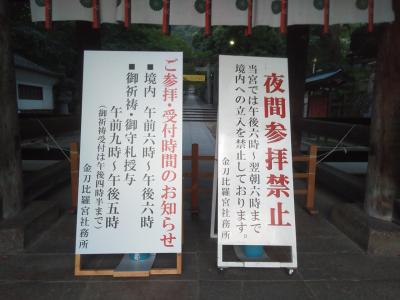 夜間参拝禁止
当宮では午後六時~翌朝六時まで
境内への立入を禁止しております。
金刀比羅宮社務所
ご参拝・受付時間のお知らせ
■境内 午前六時~午後六時
■御祈祷・御守札授与
午前九時~午後五時
(御祈祷受付は午後四時半まで)
金刀比羅宮社務所